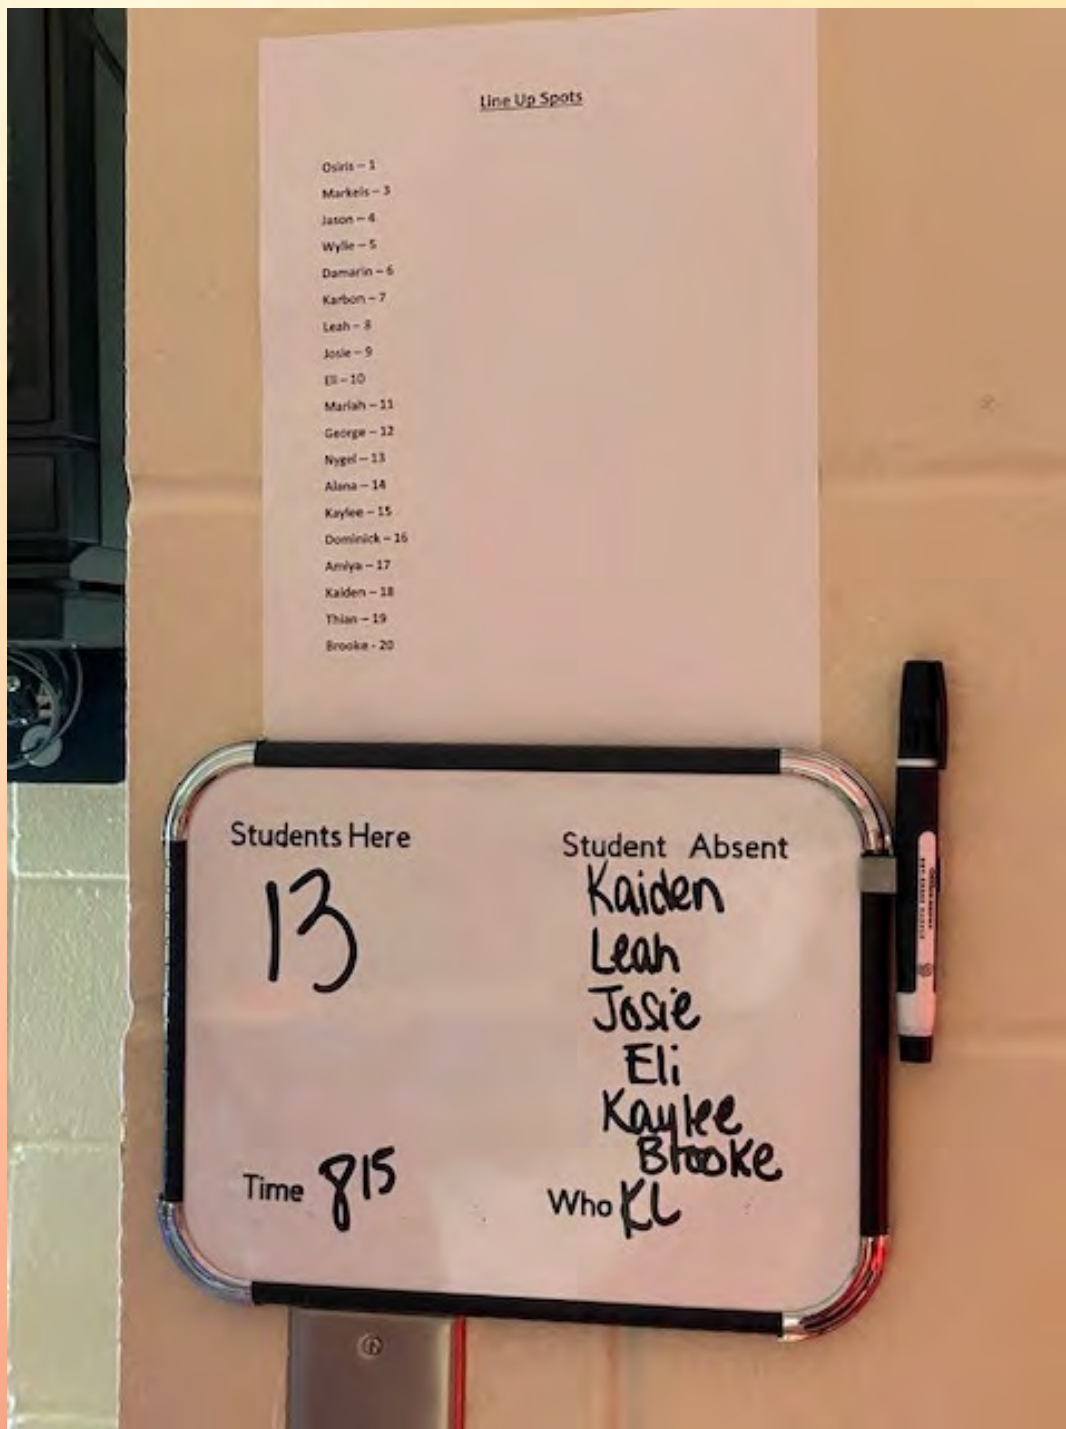 Line Up Spots
Osiris – 1
Markeis – 3
Jason – 4
Wylie – 5
Damarin – 6
Karbon – 7
Leah – 8
Josie – 9
Eli – 10
Mariah – 11
George – 12
Nygel – 13
Alana – 14
Kaylee – 15
Dominick – 16
Amiya – 17
Kaiden – 18
Thian – 19
Brooke - 20
Students Here
13
Student Absent
Kaiden
Leah
Josie
Eli
Kaylee
Brooke
Time 815
Who KL